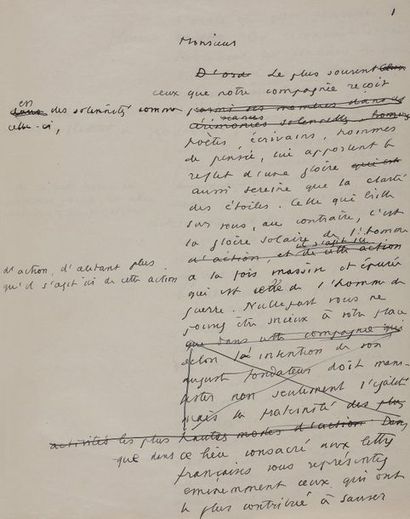 1
Monsieur
D'ord Le plus souvent
ceux que notre compagnie reçoit
en
dans des solennités comme parmi ses membres dans
celle-ci,
cérémonies solennelles, hommes
poètes, écrivains, hommes
de pensée, qui apportent le
reflet d'une gloire qui est
aussi sereine que la clarté
des étoiles. Celle qui brille
sur vous, au contraire, c'est
la gloire solaire de l'homme
d'action, et de cette action
d'action, d'autant plus
qu'il s'agit ici de cette action
à la fois massive et épurée
qui est celle de l'homme de
guerre. Nulle part vous ne
pouvez être mieux à votre place
que dans cette compagnie qui
selon la intention de son
auguste fondateur doit mani-
fester non seulement l'égalité
mais la fraternité des plus
activités les plus hautes modes d'action. Dans
que dans ce lieu consacré aux lettres
françaises vous représentez
éminemment ceux qui ont
le plus contribué à sauver